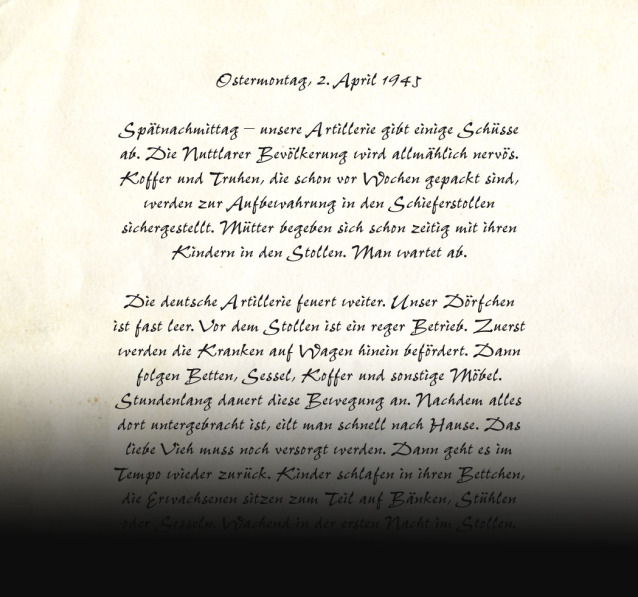 Ostermontag, 2. April 1945
Spätnachmittag – unsere Artillerie gibt einige Schüsse
ab. Die Nuttlarer Bevölkerung wird allmählich nervös.
Koffer und Truhen, die schon vor Wochen gepackt sind,
werden zur Aufbewahrung in den Schieferstollen
sichergestellt. Mütter begeben sich schon zeitig mit ihren
Kindern in den Stollen. Man wartet ab.
Die deutsche Artillerie feuert weiter. Unser Dörfchen
ist fast leer. Vor dem Stollen ist ein reger Betrieb. Zuerst
werden die Kranken auf Wagen hinein befördert. Dann
folgen Betten, Sessel, Koffer und sonstige Möbel.
Stundenlang dauert diese Bewegung an. Nachdem alles
dort untergebracht ist, eilt man schnell nach Hause. Das
liebe Vieh muss noch versorgt werden. Dann geht es im
Tempo wieder zurück. Kinder schlafen in ihren Bettchen,
die Erwachsenen sitzen zum Teil auf Bänken, Stühlen
oder Sesseln. Wachend in der ersten Nacht im Stollen.